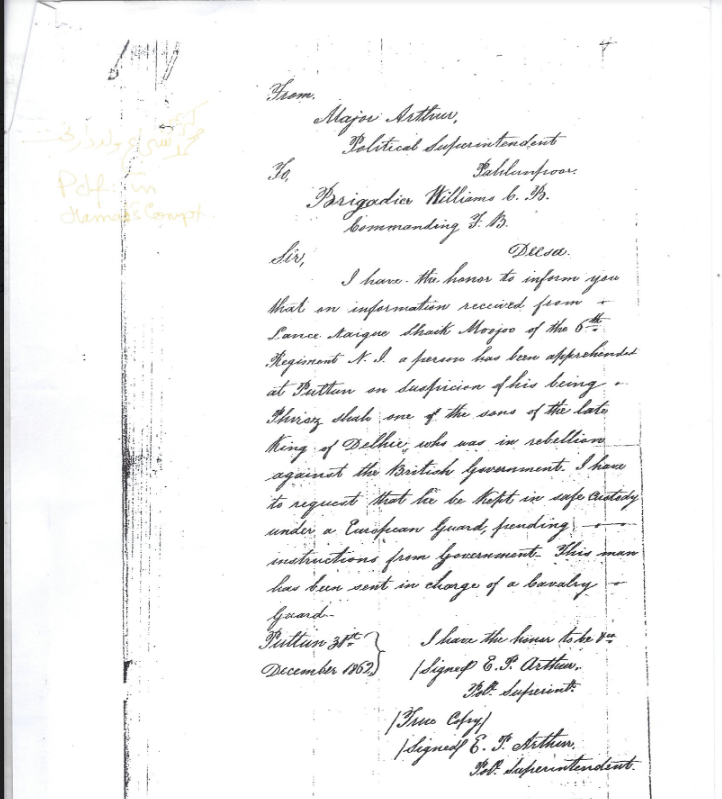 4
From,
Major Arthur,
Political Superintendent
Pahlunpoor.
To,
Brigadier Williams C. B.
Commanding F. B.
Deesa.
Sir,
I have the honor to inform you
that on information received from
Lance Naique Shaik Moojoo of the 6th
Regiment N. I. a person has been apprehended
at Puttun on suspicion of his being
shah one of the sons of the late
King of Delhie, who was in rebellion
against the British Government. I have
to request that he be kept in safe custody
under a European Guard, pending
instructions from Government. This man
has been sent in charge of a Cavalry
Guard.
Puttun 31st
December 1862
I have the honor to be &ca
/Signed/ E. P. Arthur,
Pol. Superint.
/True Copy/
/Signed/ E. P. Arthur,
Pol. Superintendent.